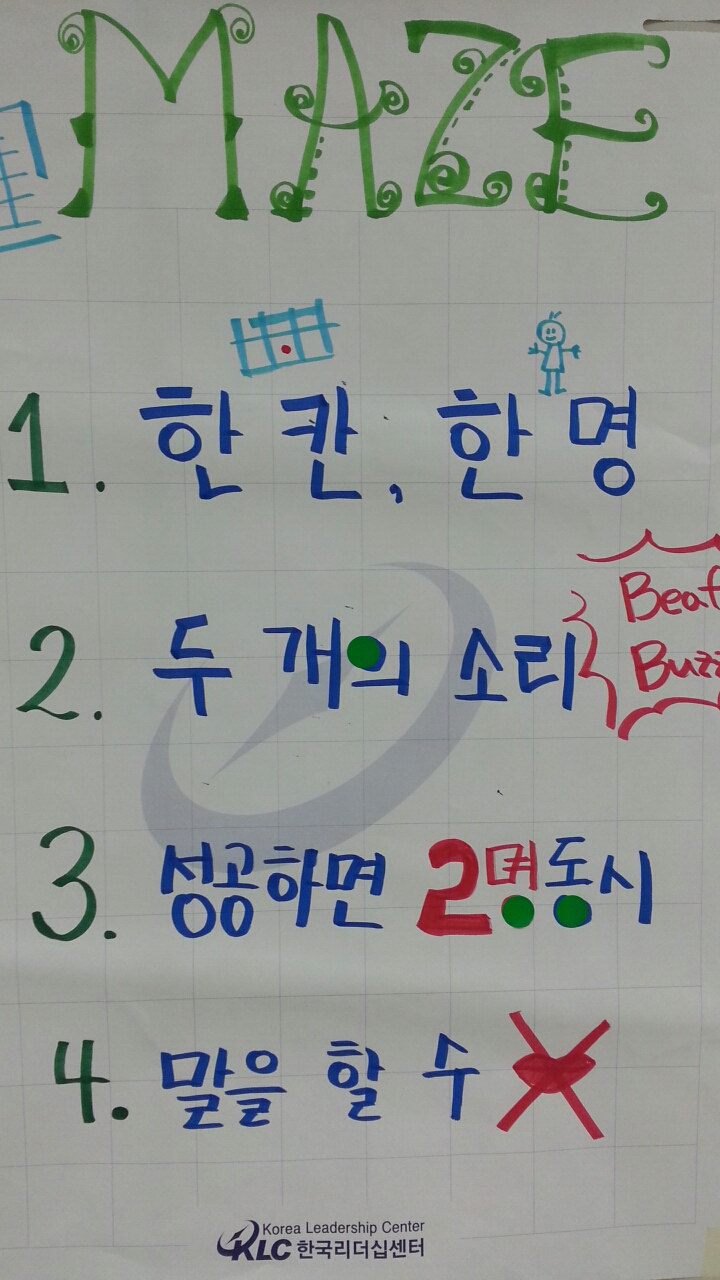 MAZE
1. 한 칸, 한 명
2. 두 개의 소리
Buzz
3. 성공하면 2명동시
4. 말을 할 수
Korea Leadership Center
KLC 한국리더십센터